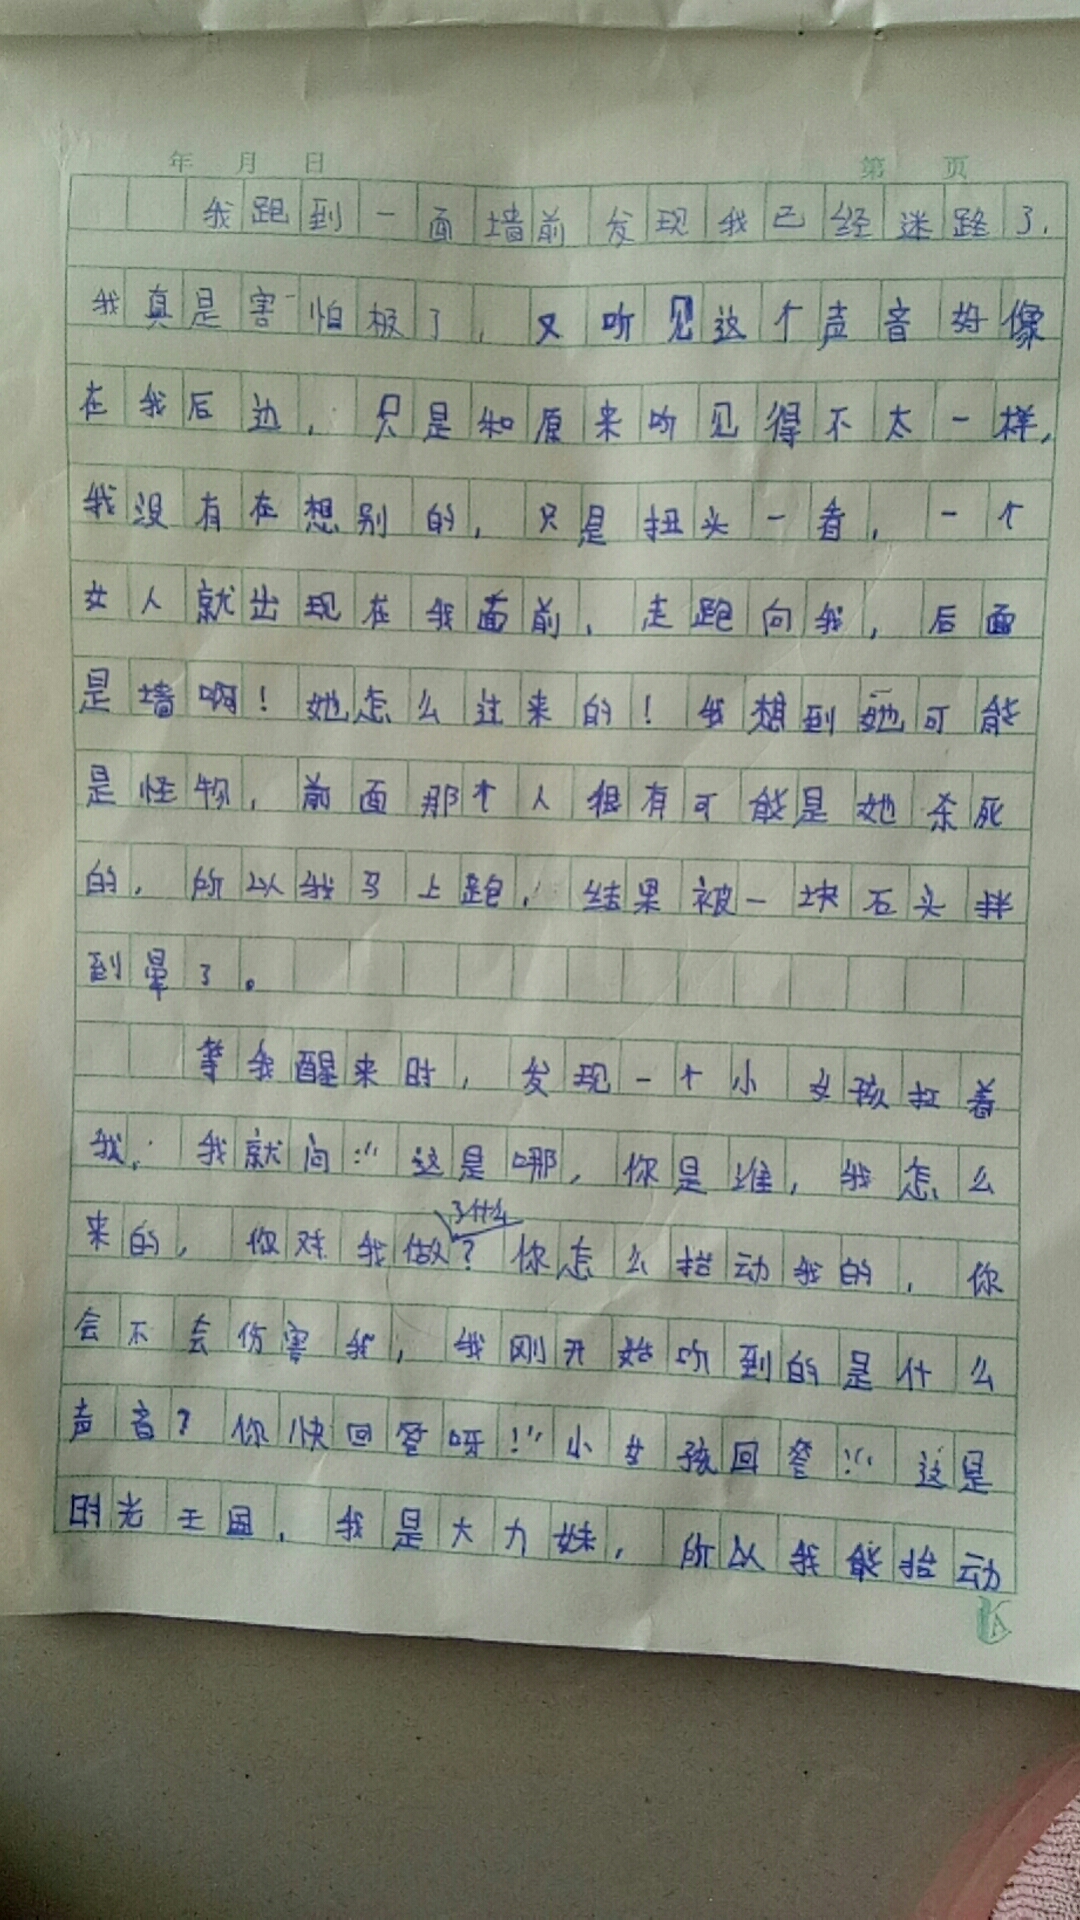 年 月 日 第 页
我跑到一面墙前发现我已经迷路了.
我真是害怕极了,又听见这个声音好像
在我后边,只是和原来听见得不太一样,
我没有在想别的,只是扭头一看,一个
女人就出现在我面前,走跑向我,后面
是墙啊!她怎么过来的!我想到她可能
是怪物,前面那个人很有可能是她杀死
的,所以我马上跑,结果被一块石头拌
到晕了。
等我醒来时,发现一个小女孩扛着
我,我就问:“这是哪,你是谁,我怎么
来的,你对我做?你怎么抬动我的,你
什么
会不会伤害我,我刚开始听到的是什么
声音?你快回答呀!”小女孩回答:“这是
时光王国,我是大力妹,所以我能抬动